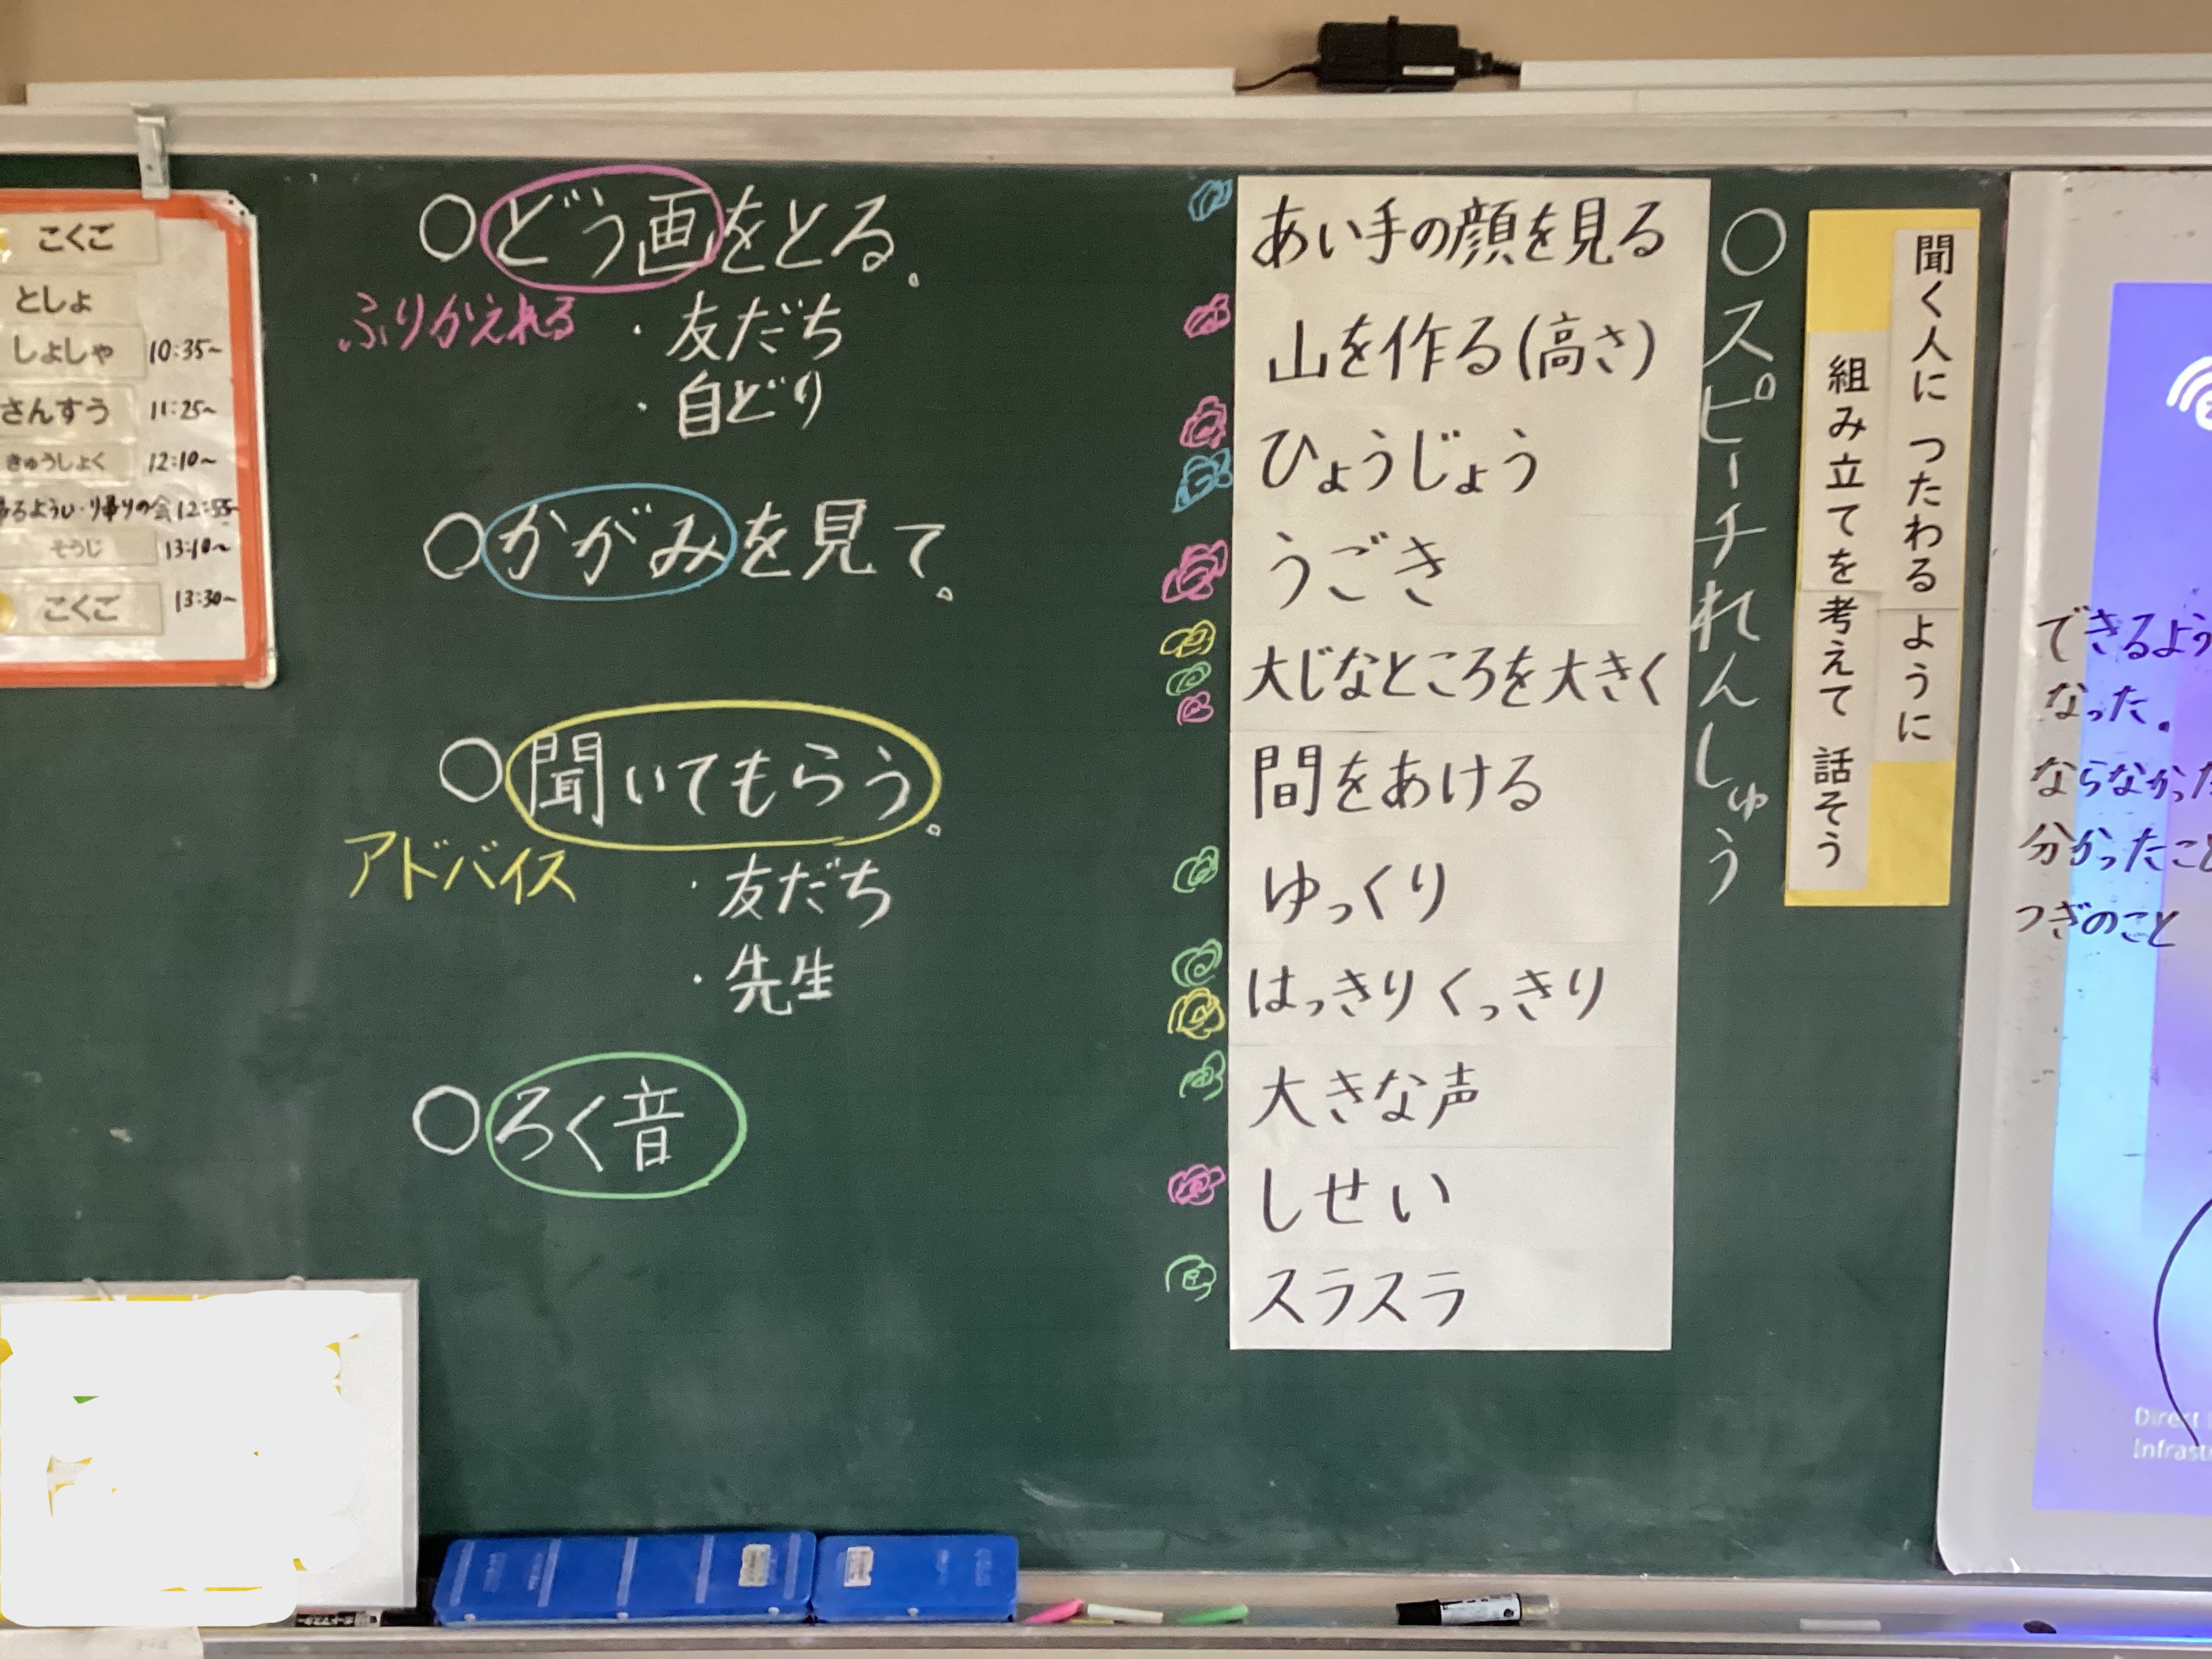 聞く人に つたわる ように
組み立てを 考えて 話そう
○スピーチれんしゅう
あい手の顔を見る
山を作る(高さ)
ひょうじょう
うごき
大じなところを大きく
間をあける
ゆっくり
はっきりくっきり
大きな声
しせい
スラスラ
○どう画をとる。
ふりかえれる
・友だち
・自どり
○かがみを見て。
○聞いてもらう。
アドバイス
・友だち
・先生
○ろく音
こくご
としょ
しょしゃ 10:35~
さんすう 11:25~
きゅうしょく 12:10~
帰りの会 12:55~
そうじ 13:10~
こくご 13:30~
できるよう
なった。
ならなかった
分かったこと
つぎのこと
Direct